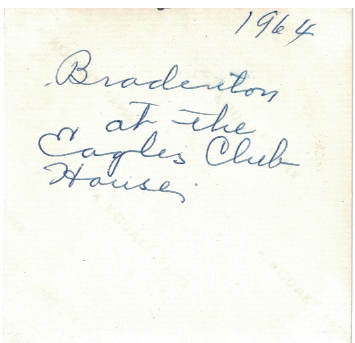 1964
Bradenton
at the
Eagles Club
House.